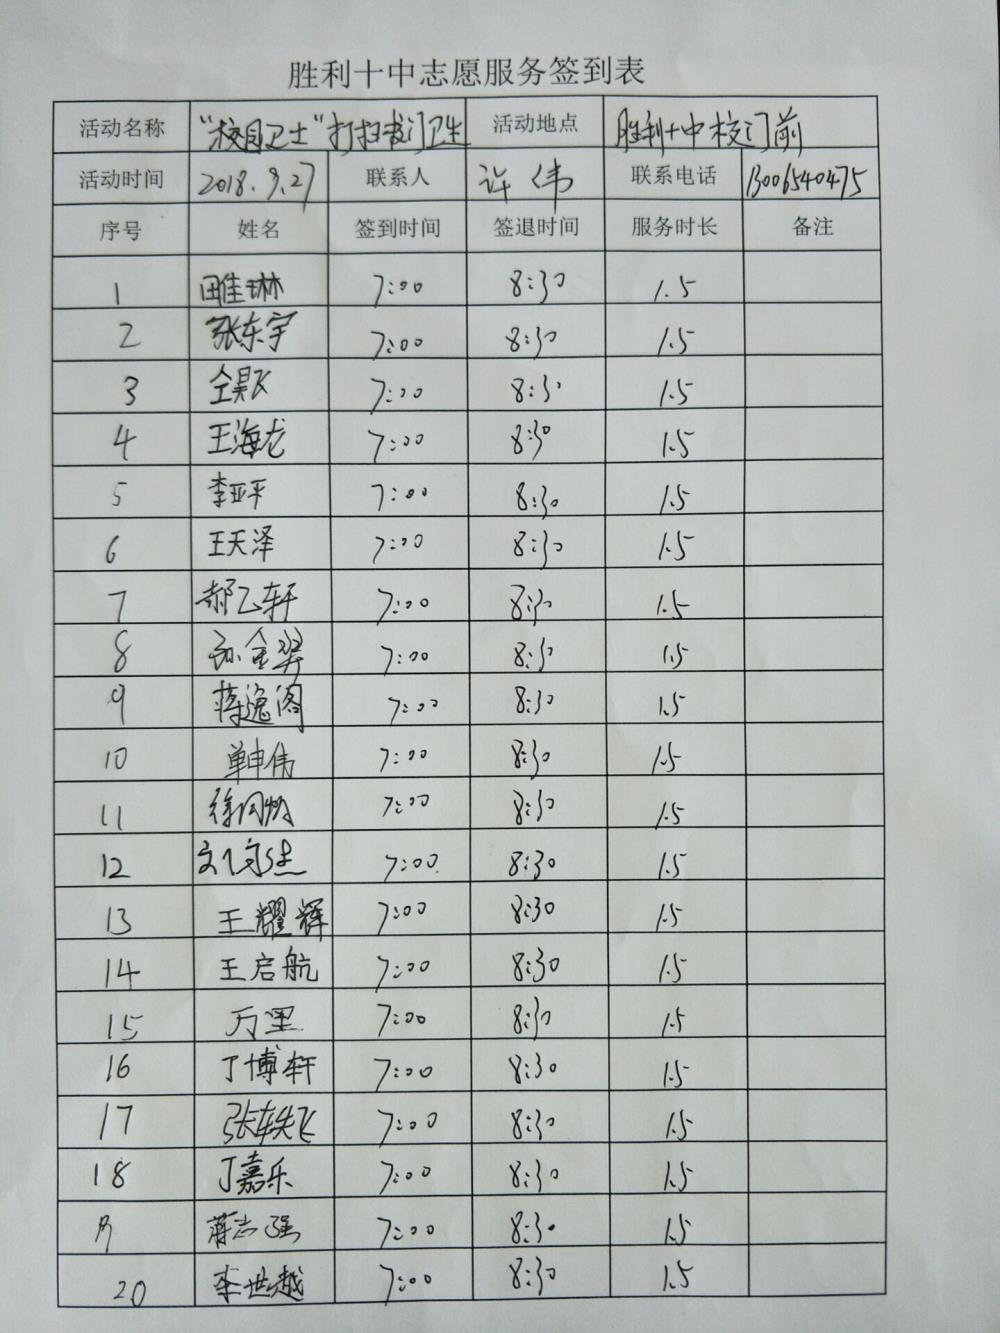 胜利十中志愿服务签到表
活动名称 "校园卫士"打扫校门卫生 活动地点 胜利十中校门前
活动时间 2018.9.27 联系人 许伟 联系电话 13006540475
序号 姓名 签到时间 签退时间 服务时长 备注
1 田佳琳 7:00 8:30 1.5
2 张东宇 7:00 8:30 1.5
3 仝昊飞 7:00 8:30 1.5
4 王海龙 7:00 8:30 1.5
5 李亚平 7:00 8:30 1.5
6 王天泽 7:00 8:30 1.5
7 郝乙轩 7:00 8:30 1.5
8 孙金羿 7:00 8:30 1.5
9 蒋逸阁 7:00 8:30 1.5
10 单申伟 7:00 8:30 1.5
11 徐 7:00 8:30 1.5
12 7:00 8:30 1.5
13 王耀辉 7:00 8:30 1.5
14 王启航 7:00 8:30 1.5
15 万里 7:00 8:30 1.5
16 丁博轩 7:00 8:30 1.5
17 张轶飞 7:00 8:30 1.5
18 丁嘉乐 7:00 8:30 1.5
19 蒋志强 7:00 8:30 1.5
20 李世越 7:00 8:30 1.5